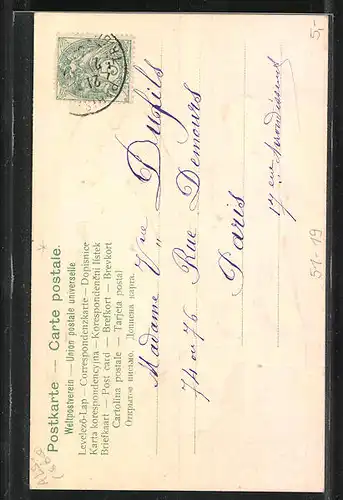 Postkarte — Carte postale.
Weltpostverein — Union postale universelle
Levelező-Lap — Correspondenzkarte — Dopisnice
Karta korespondencyjna — Korespondenční listek
Briefkaart — Post card — Brefkort — Brevkort
Cartolina postale — Tarjeta postal
Открытое письмо. Дописна карта.
Madame Vve Dufils
74 ou 76 Rue Demours
Paris
17 eme Arrondissement
5,-
51-19